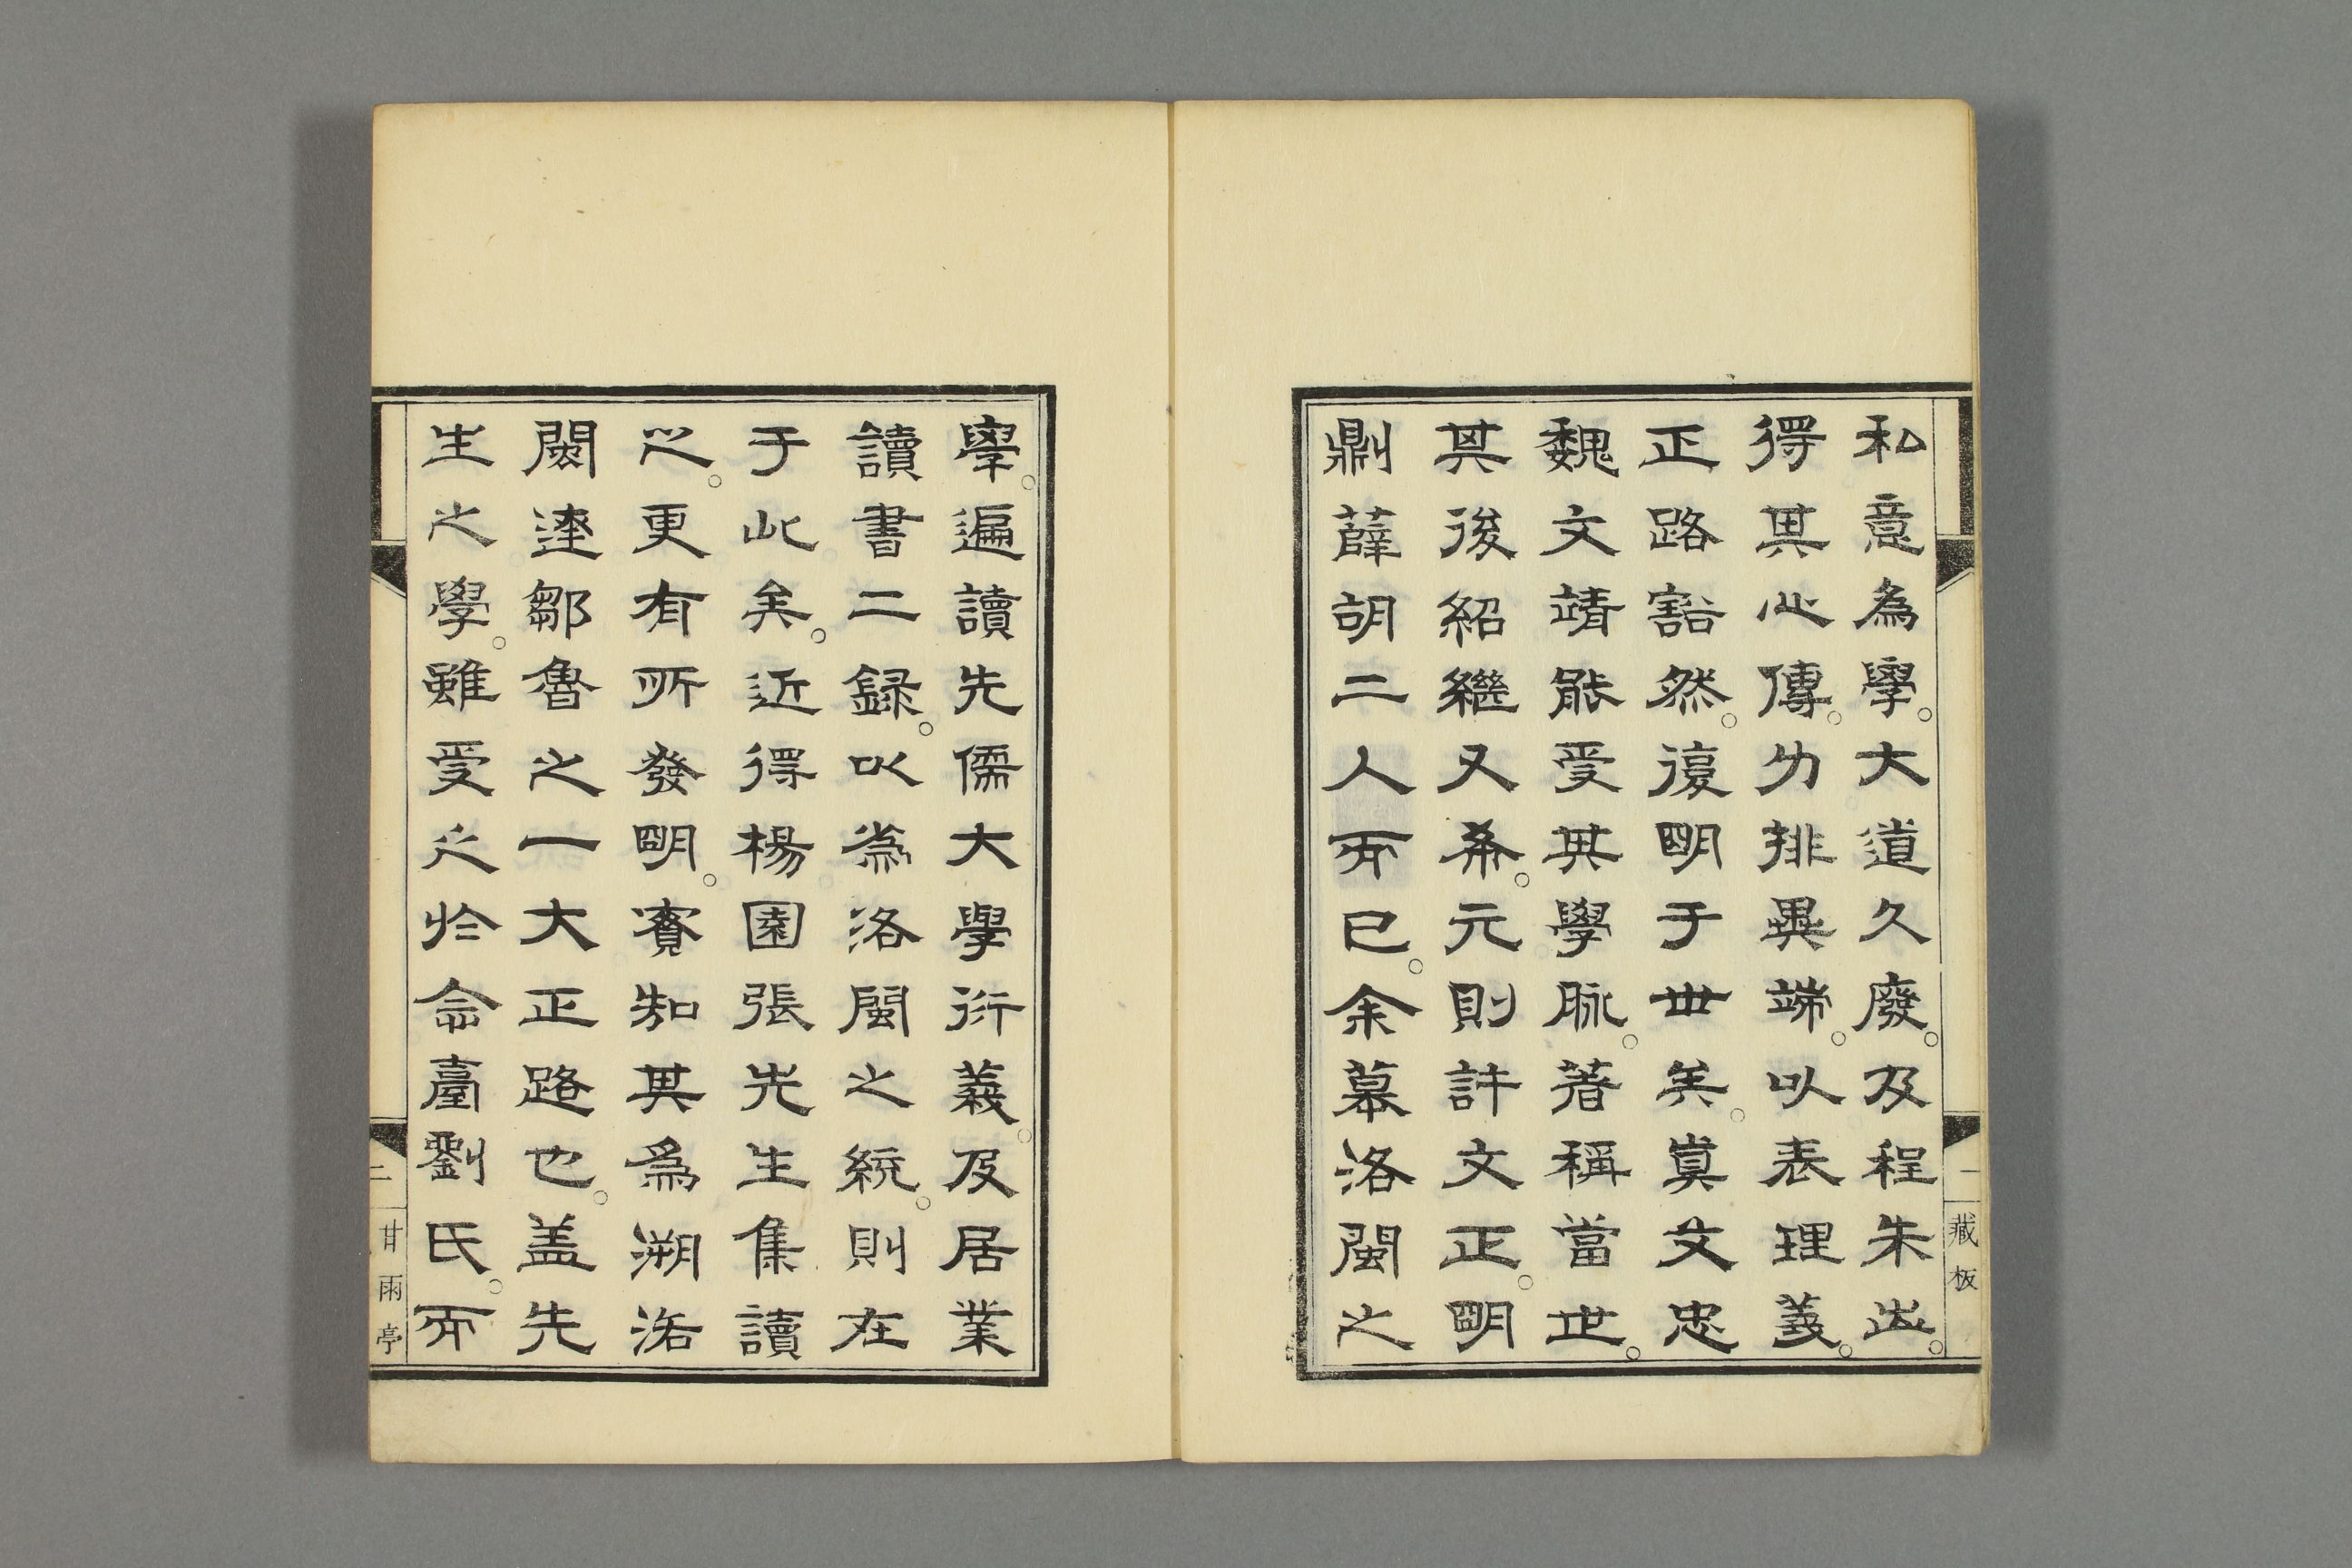 私意為學。大道久廢。及程朱出。
得其心傳。力排異端。以表理義。
正路豁然。復明于世矣。眞文忠
魏文靖能受其學脉。著稱當世。
其後紹繼又希。元則許文正。明
則薛胡二人而已。余慕洛閩之
學。遍讀先儒大學衍義。及居業
讀書二録。以為洛閩之統。則在
于此矣。近得楊園張先生集讀
之。更有所發明。賓知其爲溯洛
閩達鄒魯之一大正路也。盖先
生之學。雖受之於念臺劉氏。而
一 藏板
二 甘雨亭